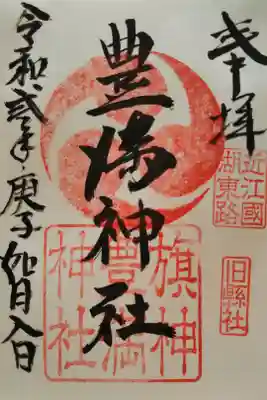 拝
近江國
湖東路
旧縣社
豊満神社
旗神
豊満
神社
令和弐年庚子如月日